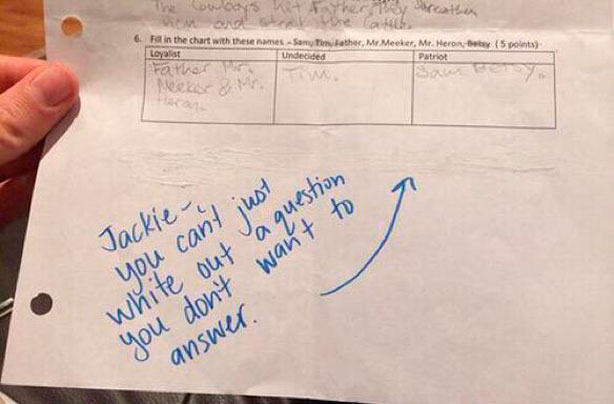 The Cowboys hit Father. They threathen
him and steal the Cattle.
6. Fill in the chart with these names. - Sam, Tim, Father, Mr.Meeker, Mr. Heron, Betsy ( 5 points)
Loyalist Undecided Patriot
Father Mr. Tim. Sam Betsy.
Meeker & Mr.
Heron.
Jackie-
you can't just
white out a question
you don't want to
answer.